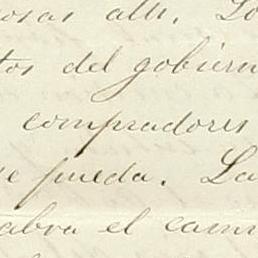 osas allí. Lo
tos del gobiern
compradores
se pueda. La
abra el cami